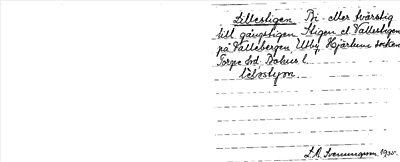 Lillestigen Bi- eller tvärstig
till gångstigen Stigen el. Vallestigen
på Vallebergen, Utby, Hjärtums socken
Torpe hd Bohus l.
L. A. Svenungsson 1930.